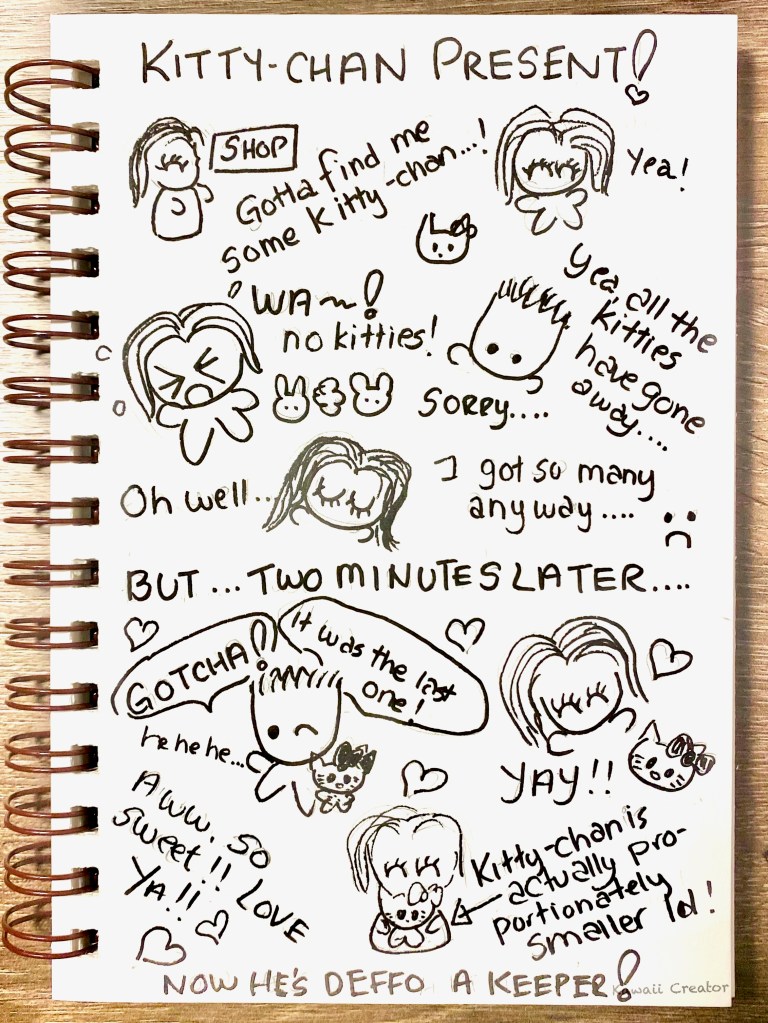 KITTY-CHAN PRESENT!
SHOP
Gotta find me
some kitty-chan...!
Yea!
WA~!
no kitties!
Yea, all the
kitties
have gone
away....
Sorry....
Oh well...
I got so many
anyway....
BUT... TWO MINUTES LATER....
GOTCHA!
It was the last
one!
he he he...
YAY!!
Aww, so
sweet!! LOVE
YA!!
Kitty-chan is
actually pro-
portionately
smaller lol!
NOW HE'S DEFFO A KEEPER!
Kawaii Creator